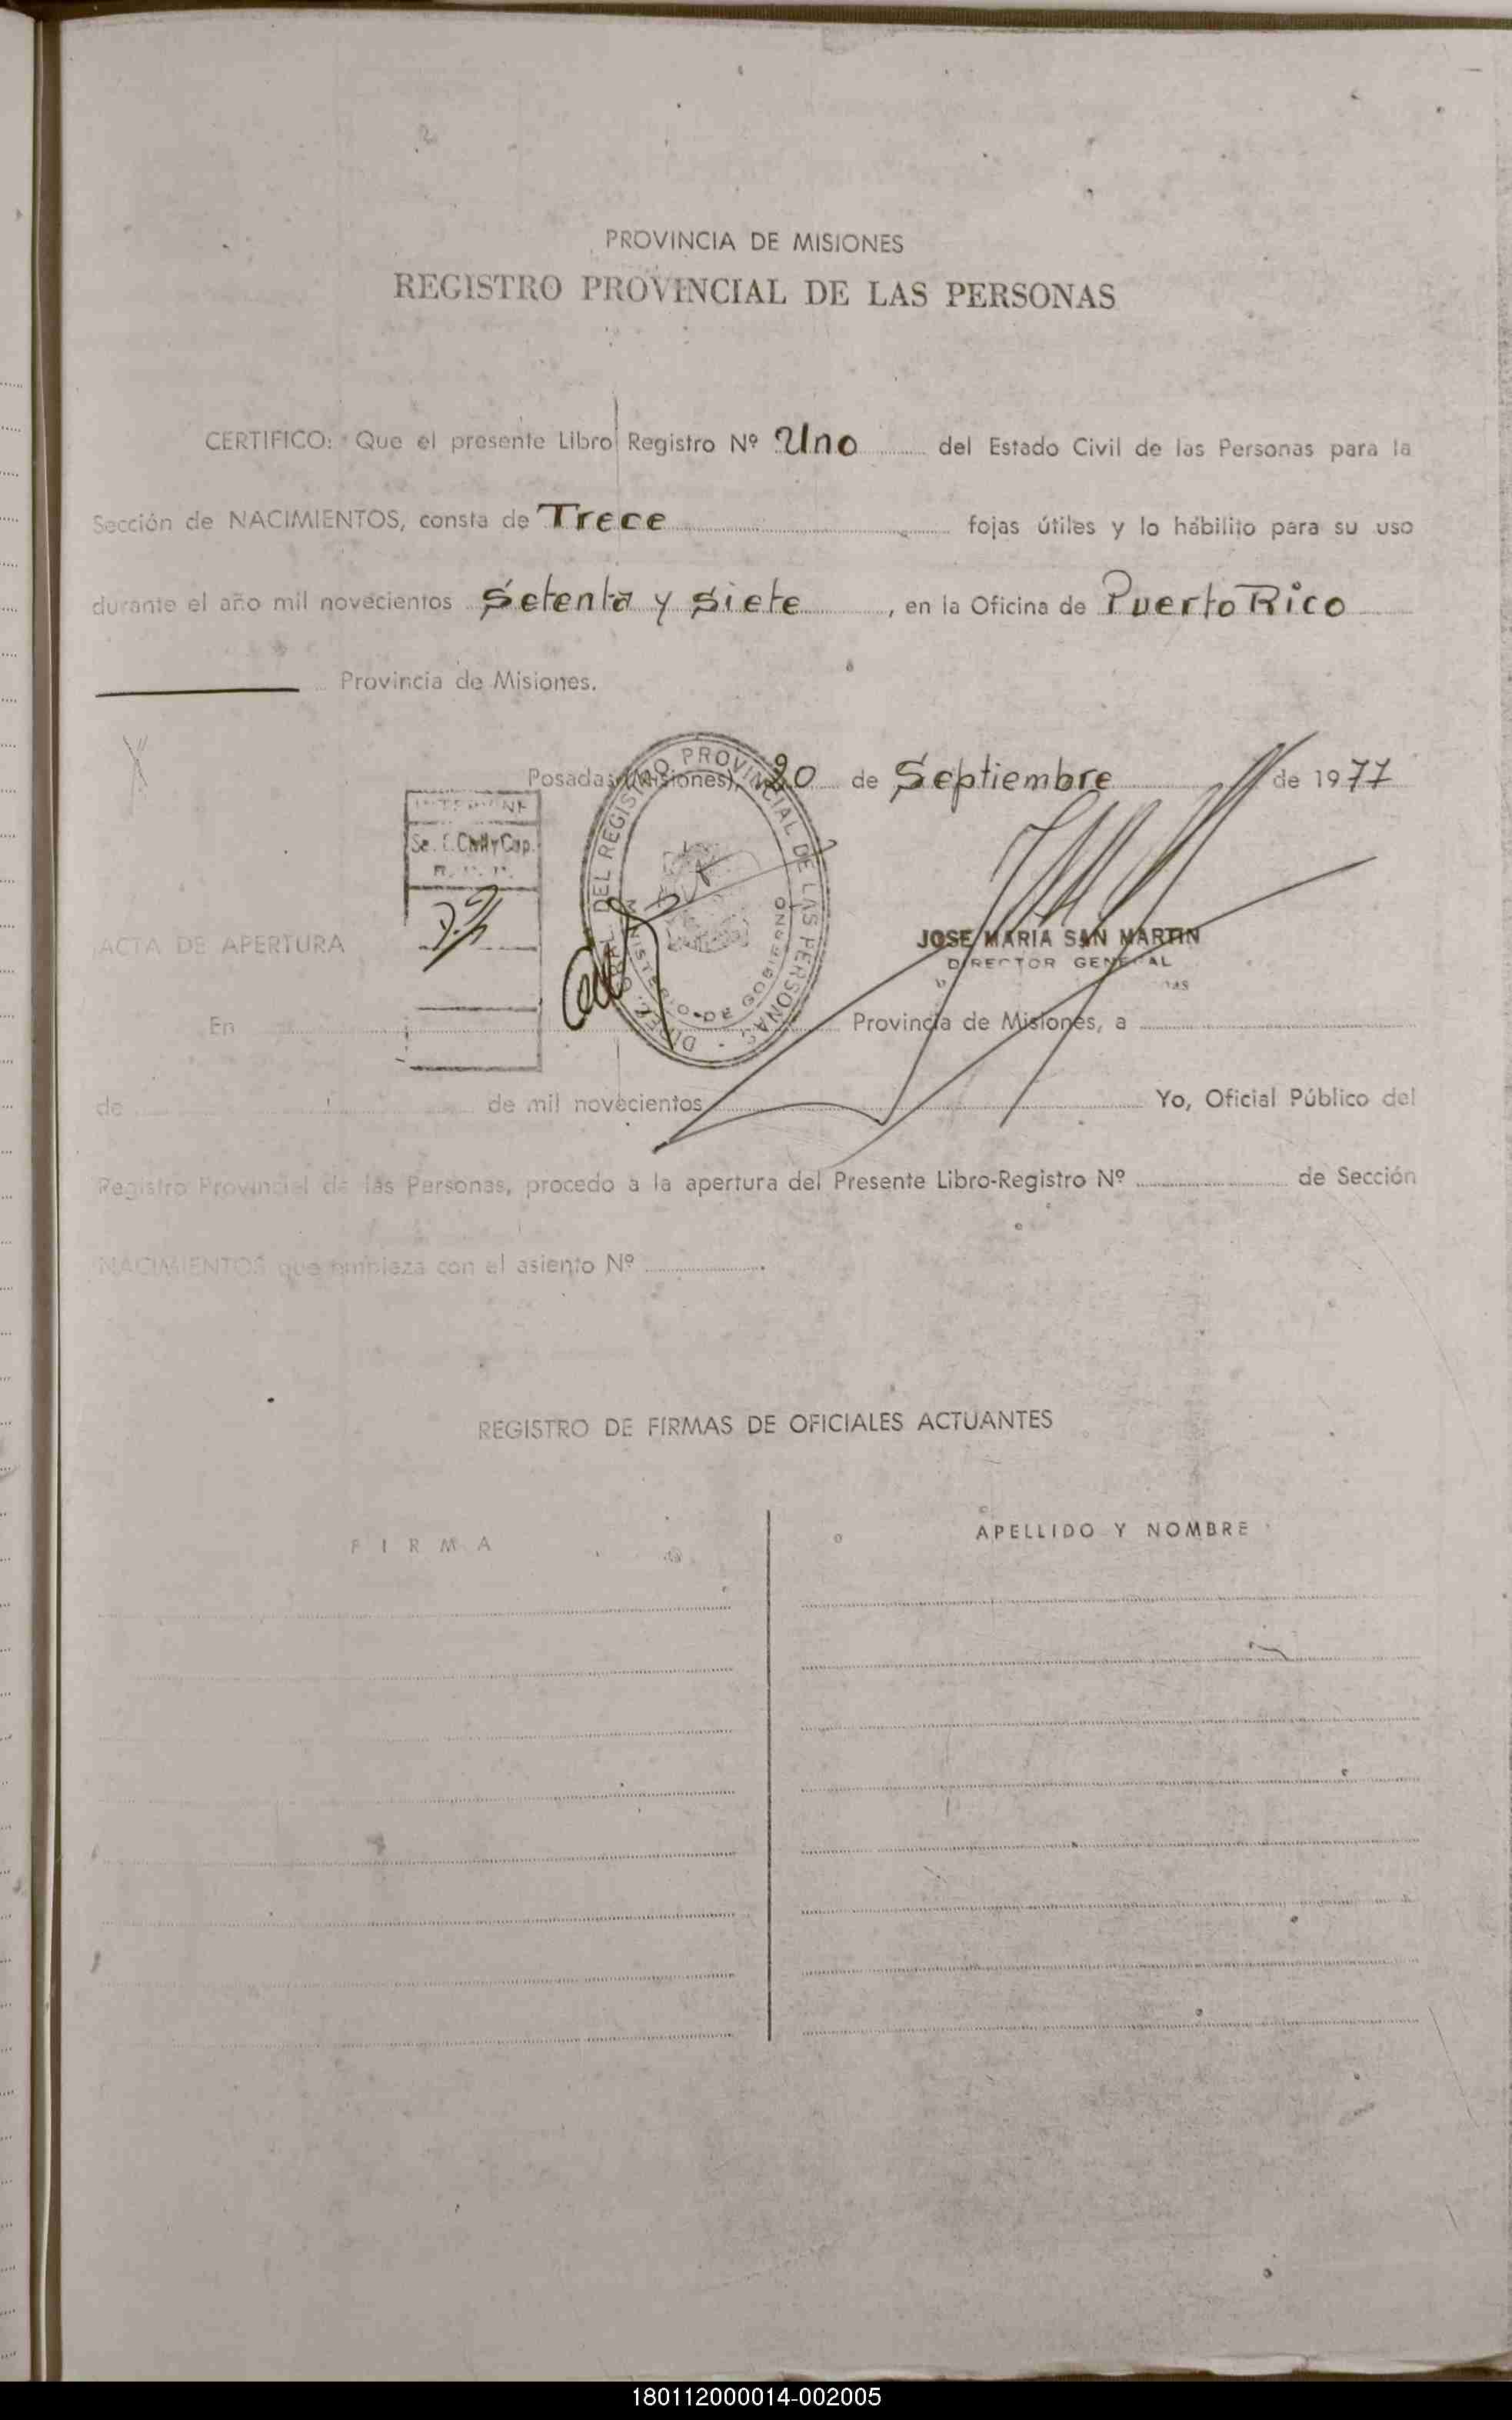 PROVINCIA DE MISIONES
REGISTRO PROVINCIAL DE LAS PERSONAS
CERTIFICO: Que el presente Libro Registro Nº Uno del Estado Civil de las Personas para la
Sección de NACIMIENTOS, consta de Trece fojas útiles y lo habilito para su uso
durante el año mil novecientos Setenta y Siete, en la Oficina de Puerto Rico
Provincia de Misiones.
Posadas (Misiones), 20 de Septiembre de 1977
INTERVINE
Se. E. Civil y Cap.
DEL REGISTRO PROVINCIAL DE LAS PERSONAS
MINISTERIO DE GOBIERNO
JOSE MARIA SAN MARTIN
DIRECTOR GENERAL
ACTA DE APERTURA
En Provincia de Misiones, a
de de mil novecientos Yo, Oficial Público del
Registro Provincial de las Personas, procedo a la apertura del Presente Libro-Registro Nº de Sección
NACIMIENTOS que empieza con el asiento Nº
REGISTRO DE FIRMAS DE OFICIALES ACTUANTES
FIRMA
APELLIDO Y NOMBRE
180112000014-002005